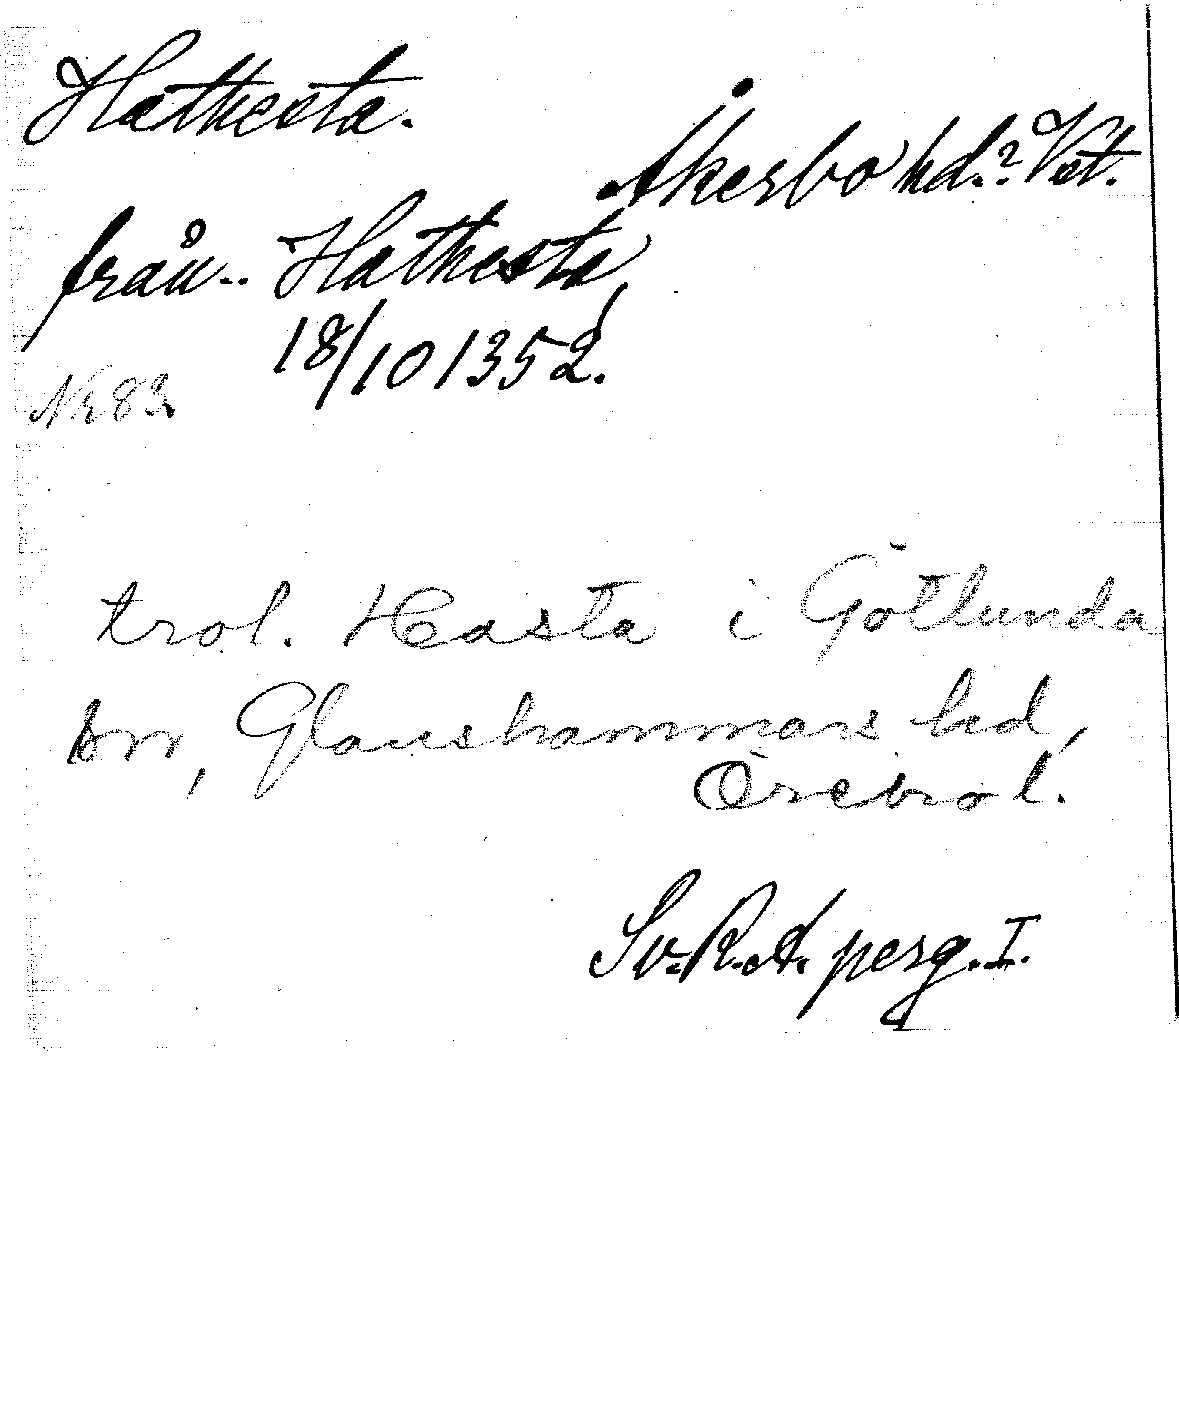 Hathesta.
Åkerbo hd.? Vst.
från.. Hathesta
18/10 1352.
Nr 82
trol. Hasta i Götlunda
sn, Glanshammars hd,
Örebro l.
Sv. R.A. perg. I.